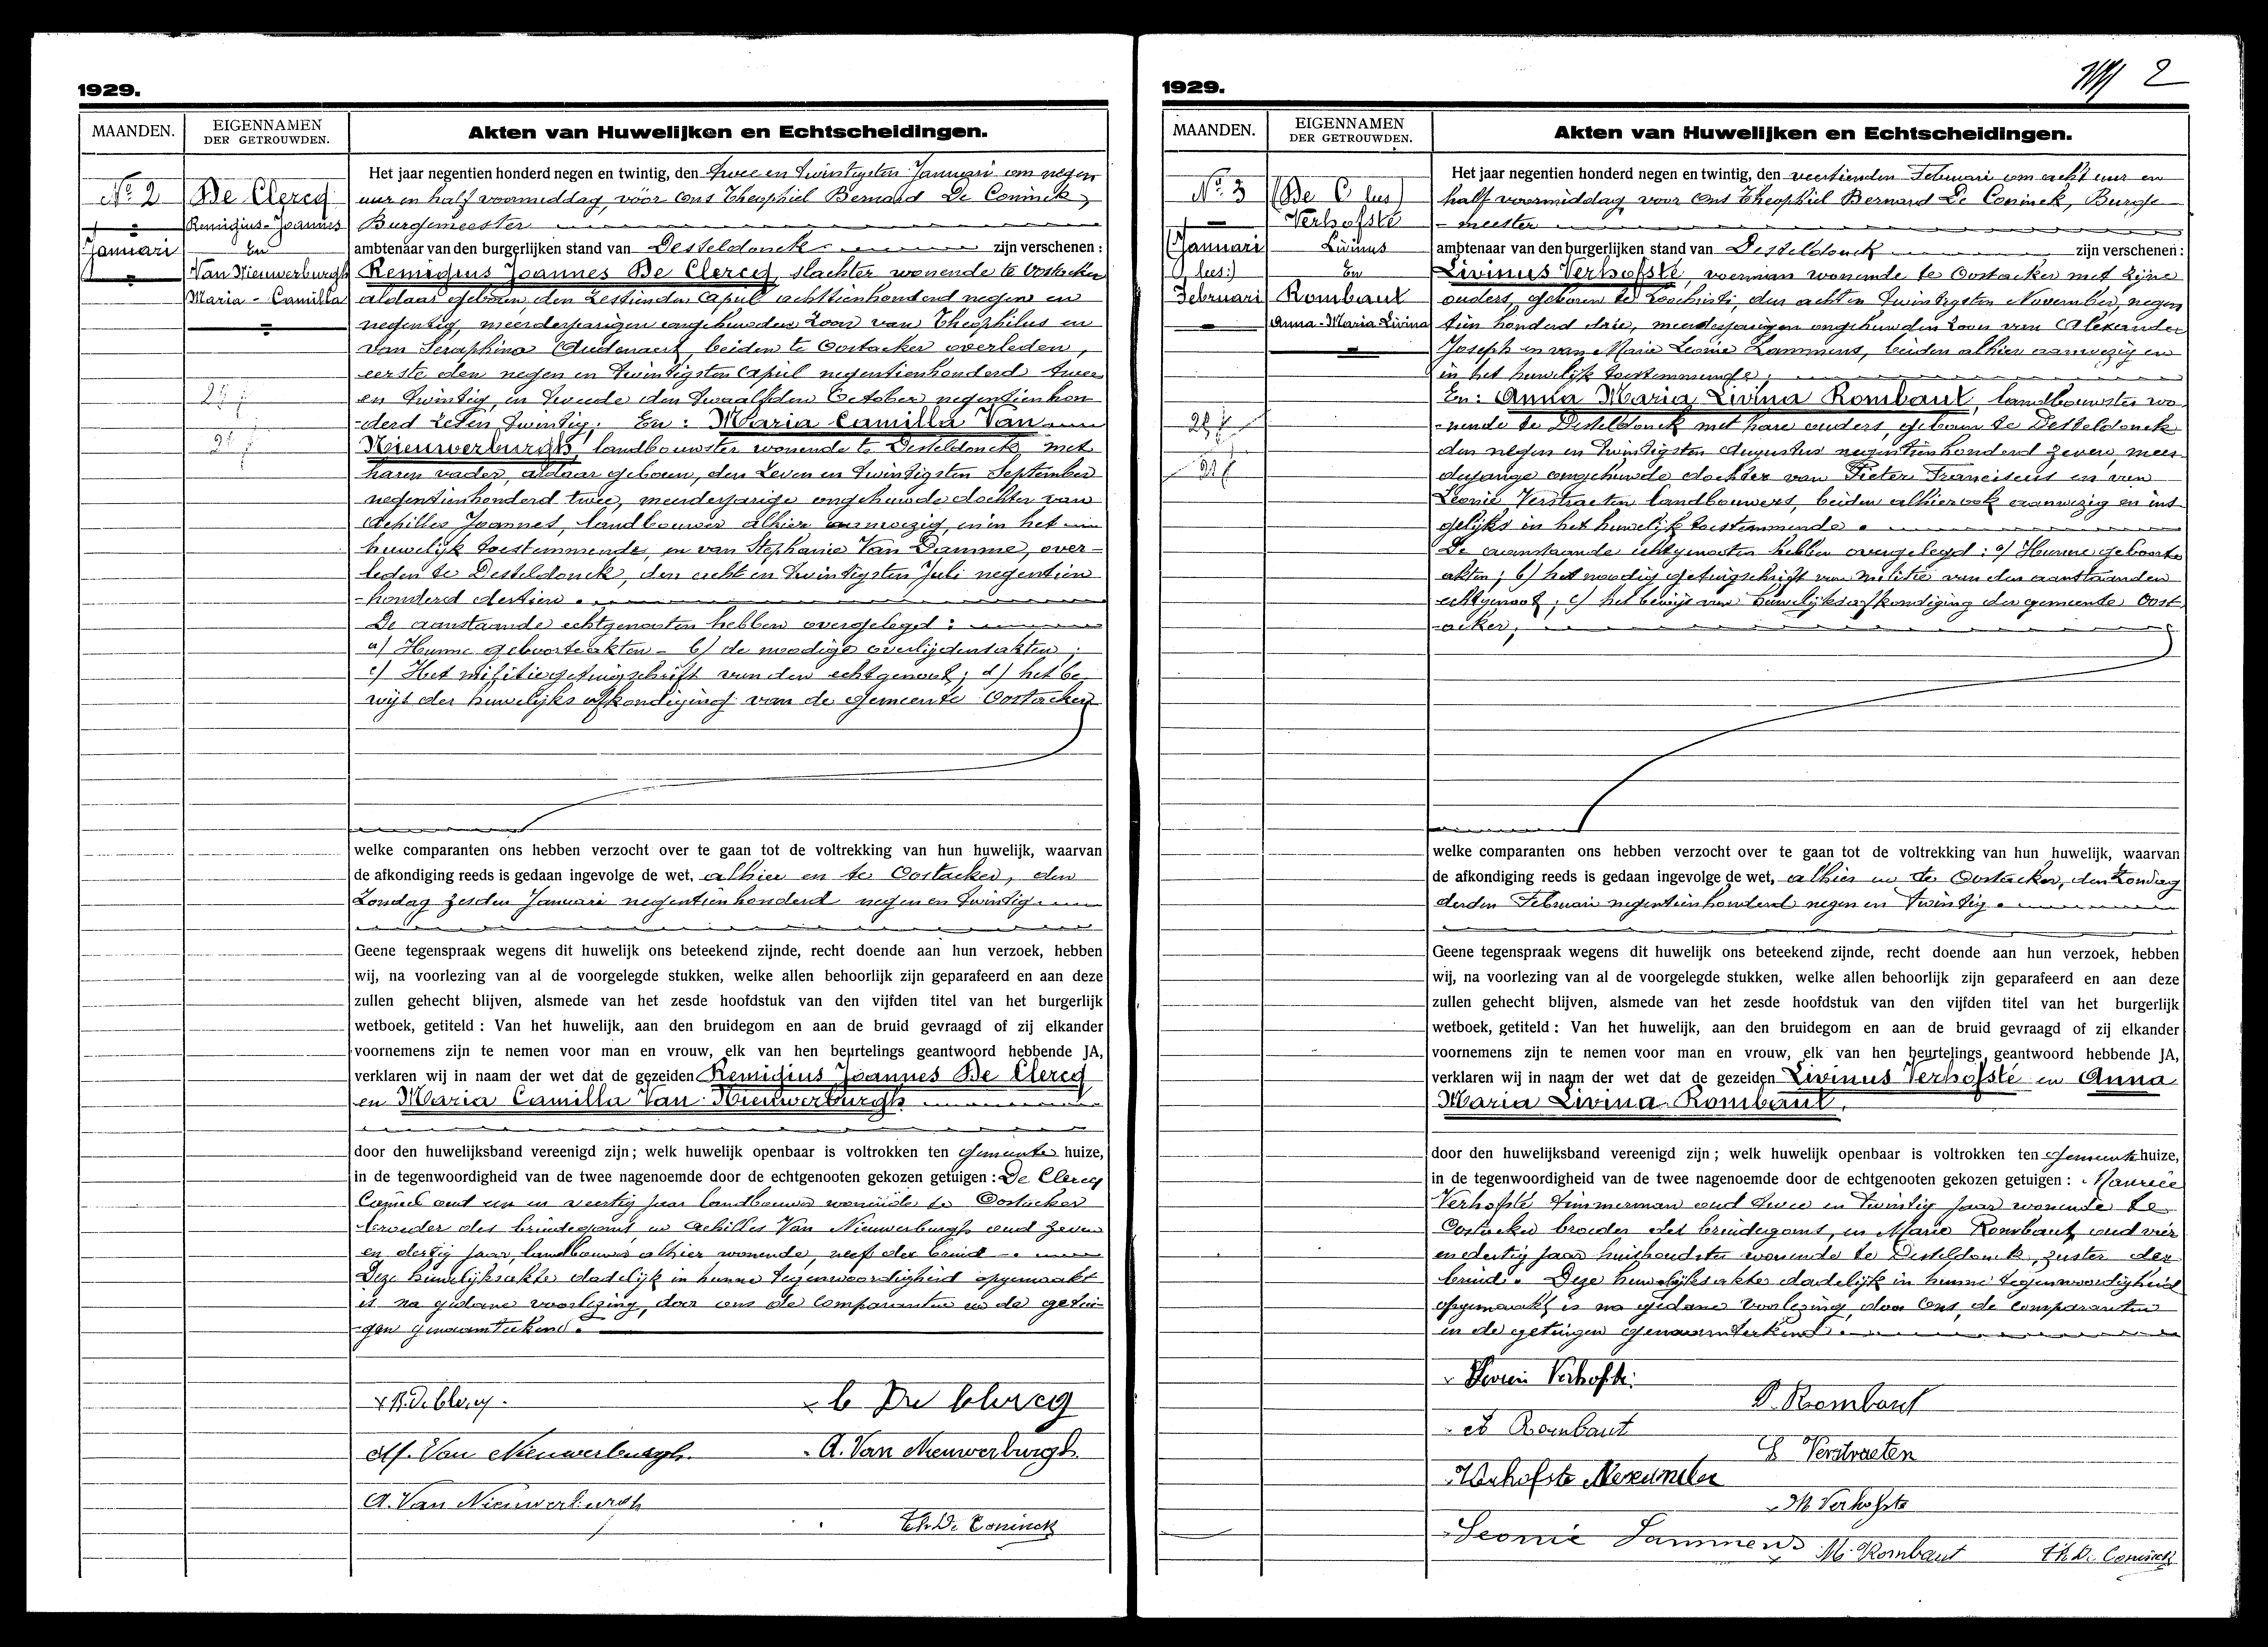 1929.
MAANDEN.
EIGENNAMEN
DER GETROUWDEN.
Akten van Huwelijken en Echtscheidingen.
Nº 2
Januari
De Clercq
Remigius-Joannes
En
Van Nieuwerburgh
Maria-Camilla
Het jaar negentien honderd negen en twintig, den twee en twintigsten Januari om negen
uur en half voormiddag, vóor ons Theophiel Bernard De Coninck,
Burgemeester
ambtenaar van den burgerlijken stand van Desteldonck zijn verschenen :
Remigius Joannes De Clercq, slachter wonende te Oostacker
aldaar geboren, den zestienden April achttienhonderd negen en
negentig, meerderjarigen ongehuwden zoon van Theophilus en
van Seraphina Audenaert, beiden te Oostacker overleden,
eerste den negen en twintigsten April negentienhonderd twee
en twintig, en tweede den twaalfden October negentienhon-
-derd zeven twintig. En : Maria Camilla Van
Nieuwerburgh, landbouwster wonende te Desteldonck met
haren vader, aldaar geboren, den zeven en twintigsten September
negentienhonderd twee, meerderjarige ongehuwde dochter van
Achilles Joannes, landbouwer alhier aanwezig, en in het
huwelijk toestemmende, en van Stephanie Van Damme, over-
leden te Desteldonck, den acht en twintigsten Juli negentien
-honderd dertien.
De aanstaande echtgenooten hebben overgelegd :
a) Hunne geboorteakten - b) de noodige overlijdensakten ;
c) Het militiegetuigschrift van den echtgenoot ; d) het be
wijs der huwelijks afkondiging van de gemeente Oostacker
welke comparanten ons hebben verzocht over te gaan tot de voltrekking van hun huwelijk, waarvan
de afkondiging reeds is gedaan ingevolge de wet, alhier en te Oostacker, den
Zondag zesden Januari negentienhonderd negen en twintig.
Geene tegenspraak wegens dit huwelijk ons beteekend zijnde, recht doende aan hun verzoek, hebben
wij, na voorlezing van al de voorgelegde stukken, welke allen behoorlijk zijn geparafeerd en aan deze
zullen gehecht blijven, alsmede van het zesde hoofdstuk van den vijfden titel van het burgerlijk
wetboek, getiteld : Van het huwelijk, aan den bruidegom en aan de bruid gevraagd of zij elkander
voornemens zijn te nemen voor man en vrouw, elk van hen beurtelings geantwoord hebbende JA,
verklaren wij in naam der wet dat de gezeiden Remigius Joannes De Clercq
en Maria Camilla Van Nieuwerburgh
door den huwelijksband vereenigd zijn ; welk huwelijk openbaar is voltrokken ten Gemeente huize,
in de tegenwoordigheid van de twee nagenoemde door de echtgenooten gekozen getuigen : De Clercq
Camiel oud een en veertig jaar landbouwer wonende te Oostacker
broeder des bruidegoms, en Achilles Van Nieuwerburgh oud zeven
en dertig jaar, landbouwer alhier wonende, neef der bruid.
Deze huwelijksakte dadelijk in hunne tegenwoordigheid opgemaakt
is na gedane voorlezing, door ons de comparanten en de getui-
-gen genaamteekend.
x R. De Clercq.
x C De Clercq
M. Van Nieuwerburgh.
A. Van Nieuwerburgh
A. Van Nieuwerburgh
Th. De Coninck
1929.
2
MAANDEN.
EIGENNAMEN
DER GETROUWDEN.
Akten van Huwelijken en Echtscheidingen.
Nº 3
(Januari
lees:)
Februari
(De C lees)
Verhofsté
Livinus
En
Rombaut
Anna-Maria Livina
Het jaar negentien honderd negen en twintig, den veertienden Februari om acht uur en
half voormiddag, voor ons Theophiel Bernard De Coninck, Burge
-meester
ambtenaar van den burgerlijken stand van Desteldonck zijn verschenen :
Livinus Verhofsté, voerman wonende te Oostacker met zijne
ouders, geboren te Loochristi, den achten twintigsten November, negen
tien honderd drie, meerderjarigen ongehuwden zoon van Alexander
Joseph en van Marie Leonie Lammens, beiden alhier aanwezig en
in het huwelijk toestemmende ;
En : Anna Maria Livina Rombaut, landbouwster wo-
-nende te Desteldonck met hare ouders, geboren te Desteldonck
den negen en twintigsten Augustus negentienhonderd zeven, meer
derjarige ongehuwde dochter van Pieter Franciscus en van
Leonie Verstraeten landbouwers, beiden alhier ook aanwezig en ins
gelijks in het huwelijk toestemmende.
De aanstaande echtgenooten hebben overgelegd : a) Hunne geboorte
akten ; b) het noodig getuigschrift van militie van den aanstaanden
echtgenoot ; c) het bewijs van huwelijksafkondiging der gemeente Oost
-acker ;
welke comparanten ons hebben verzocht over te gaan tot de voltrekking van hun huwelijk, waarvan
de afkondiging reeds is gedaan ingevolge de wet, alhier en te Oostacker, den Zondag
derden Februari negentienhonderd negen en twintig.
Geene tegenspraak wegens dit huwelijk ons beteekend zijnde, recht doende aan hun verzoek, hebben
wij, na voorlezing van al de voorgelegde stukken, welke allen behoorlijk zijn geparafeerd en aan deze
zullen gehecht blijven, alsmede van het zesde hoofdstuk van den vijfden titel van het burgerlijk
wetboek, getiteld : Van het huwelijk, aan den bruidegom en aan de bruid gevraagd of zij elkander
voornemens zijn te nemen voor man en vrouw, elk van hen beurtelings geantwoord hebbende JA,
verklaren wij in naam der wet dat de gezeiden Livinus Verhofsté en Anna
Maria Livina Rombaut.
door den huwelijksband vereenigd zijn ; welk huwelijk openbaar is voltrokken ten Gemeente huize,
in de tegenwoordigheid van de twee nagenoemde door de echtgenooten gekozen getuigen : Maurice
Verhofsté timmerman oud twee en twintig jaar wonende te
Oostacker broeder des bruidegoms, en Marie Rombaut, oud vier
en dertig jaar huishoudster wonende te Desteldonck, zuster der
bruid. Deze huwelijksakte dadelijk in hunne tegenwoordigheid
opgemaakt is na gedane voorlezing, door ons, de comparanten
en de getuigen genaamteekend.
Verhofste
P. Rombaut
Rombaut
Verstraeten
Verhofste Alexander
M Verhofste
Leonie Lammens
M. Rombaut
Th. De Coninck